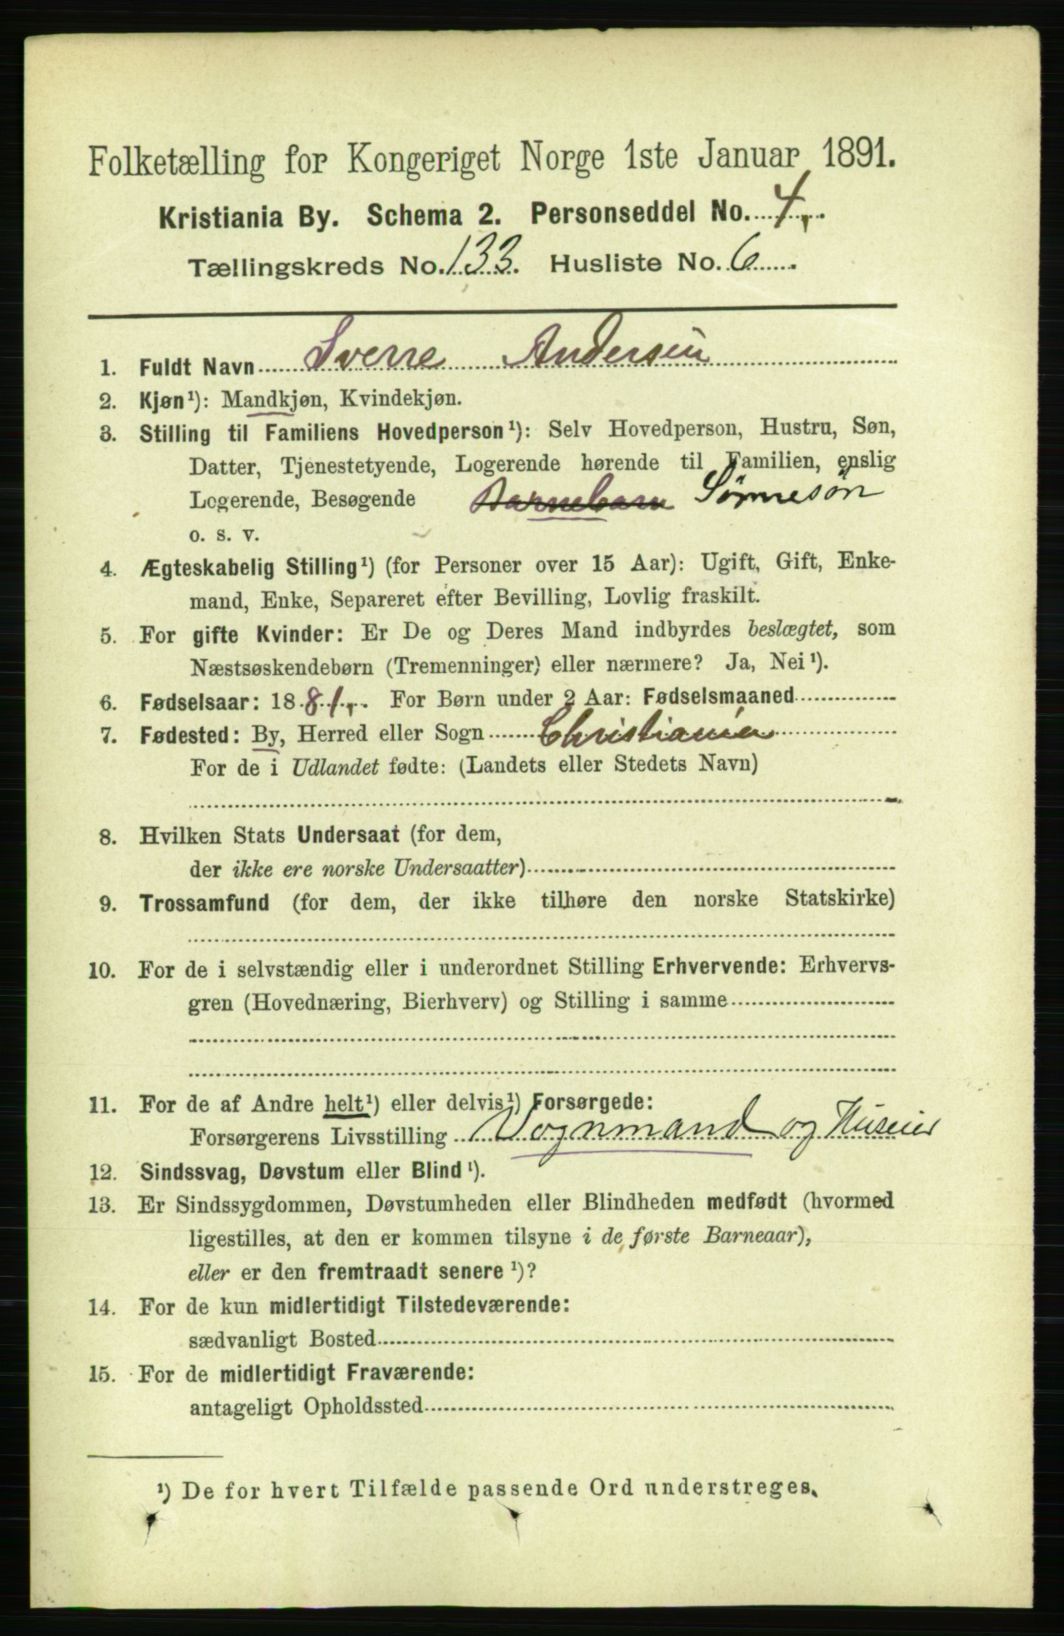 Folketælling for Kongeriget Norge 1ste Januar 1891.
Kristiania By. Schema 2. Personseddel No. 4,
Tællingskreds No. 133. Husliste No. 6
1. Fuldt Navn Sverre Andersen
2. Kjøn¹): Mandkjøn, Kvindekjøn.
3. Stilling til Familiens Hovedperson¹): Selv Hovedperson, Hustru, Søn,
Datter, Tjenestetyende, Logerende hørende til Familien, enslig
Logerende, Besøgende Barnebarn Sønnesøn
o. s. v.
4. Ægteskabelig Stilling¹) (for Personer over 15 Aar): Ugift, Gift, Enke-
mand, Enke, Separeret efter Bevilling, Lovlig fraskilt.
5. For gifte Kvinder: Er De og Deres Mand indbyrdes beslægtet, som
Næstsøskendebørn (Tremenninger) eller nærmere? Ja, Nei¹).
6. Fødselsaar: 1881,. For Børn under 2 Aar: Fødselsmaaned
7. Fødested: By, Herred eller Sogn Christiania
For de i Udlandet fødte: (Landets eller Stedets Navn)
8. Hvilken Stats Undersaat (for dem,
der ikke ere norske Undersaatter)
9. Trossamfund (for dem, der ikke tilhøre den norske Statskirke)
10. For de i selvstændig eller i underordnet Stilling Erhvervende: Erhvervs-
gren (Hovednæring, Bierhverv) og Stilling i samme
11. For de af Andre helt¹) eller delvis¹) Forsørgede:
Forsørgerens Livsstilling Vognmand og Huseier
12. Sindssvag, Døvstum eller Blind¹).
13. Er Sindssygdommen, Døvstumheden eller Blindheden medfødt (hvormed
ligestilles, at den er kommen tilsyne i de første Barneaar),
eller er den fremtraadt senere¹)?
14. For de kun midlertidigt Tilstedeværende:
sædvanligt Bosted
15. For de midlertidigt Fraværende:
antageligt Opholdssted
¹) De for hvert Tilfælde passende Ord understreges.